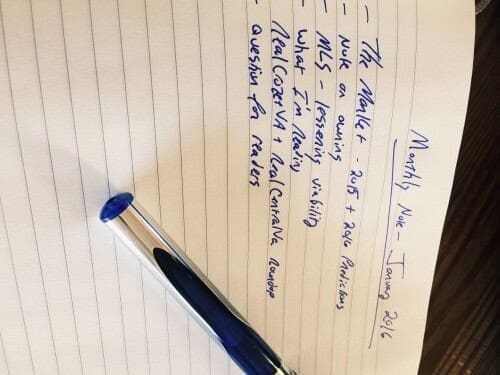 Monthly Note - January 2016
- The Market - 2015 + 2016 Predictions
- Note on owning
- MLS - lessening viability
- What I'm Reading
- RealCrozetVA + RealCentralVa roundup
- Question for readers